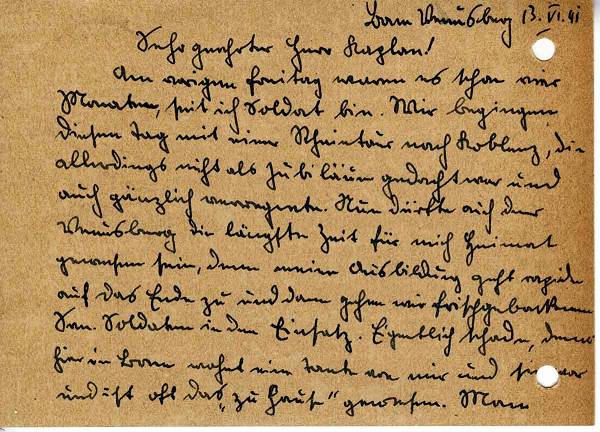 Bonn Venusberg 13. VI. 41
Sehr geehrter Herr Kaplan!
Am vorigen Freitag waren es schon vier
Monaten, seit ich Soldat bin. Wir begingen
diesen Tag mit einer Rheintour nach Koblenz, die
allerdings nicht als Jubiläum gedacht war und
auch gänzlich verregnete. Nun dürfte auch der
Venusberg die längste Zeit für mich Heimat
gewesen sein, denn meine Ausbildung geht rapide
auf das Ende zu und dann gehen wir frischgebackenen
San. Soldaten in den Einsatz. Eigentlich schade, denn
hier in Bonn wohnt eine Tante von mir und sie war
und ist oft das „zu Hause" gewesen. Mein